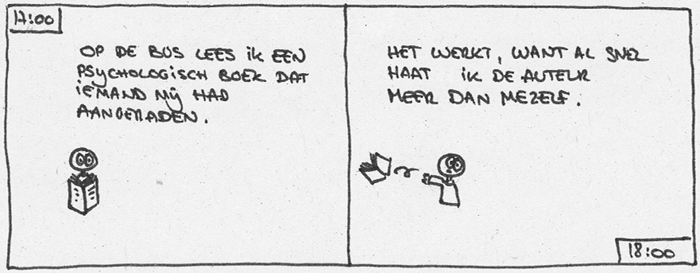 17:00
OP DE BUS LEES IK EEN
PSYCHOLOGISCH BOEK DAT
IEMAND MIJ HAD
AANGERADEN.
HET WERKT, WANT AL SNEL
HAAT IK DE AUTEUR
MEER DAN MEZELF.
18:00